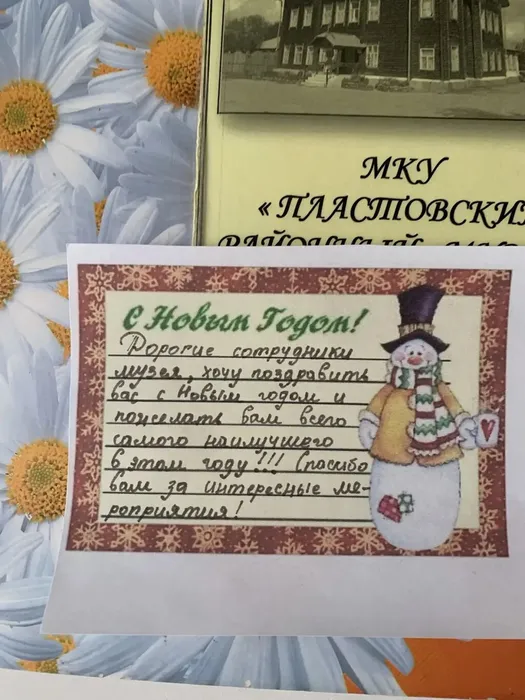 МКУ
«ПЛАСТОВСКИ
РАЙОННЫЙ
С Новым Годом!
Дорогие сотрудники
музея, хочу поздравить
вас с Новым годом и
пожелать вам всего
самого наилучшего
в этом году!!! Спасибо
вам за интересные ме-
роприятия!